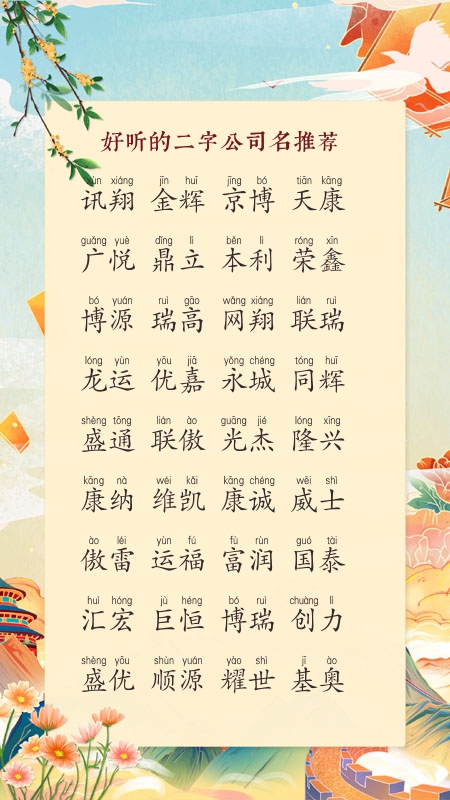 好听的二字公司名推荐
xùn xiáng jīn huī jīng bó tiān kāng
讯翔 金辉 京博 天康
guǎng yuè dǐng lì běn lì róng xīn
广悦 鼎立 本利 荣鑫
bó yuán ruì gāo wǎng xiáng lián ruì
博源 瑞高 网翔 联瑞
lóng yùn yōu jiā yǒng chéng tóng huī
龙运 优嘉 永城 同辉
shèng tōng lián ào guāng jié lóng xīng
盛通 联傲 光杰 隆兴
kāng nà wéi kǎi kāng chéng wēi shì
康纳 维凯 康诚 威士
ào léi yùn fú fù rùn guó tài
傲雷 运福 富润 国泰
huì hóng jù héng bó ruì chuàng lì
汇宏 巨恒 博瑞 创力
shèng yōu shùn yuán yào shì jī ào
盛优 顺源 耀世 基奥